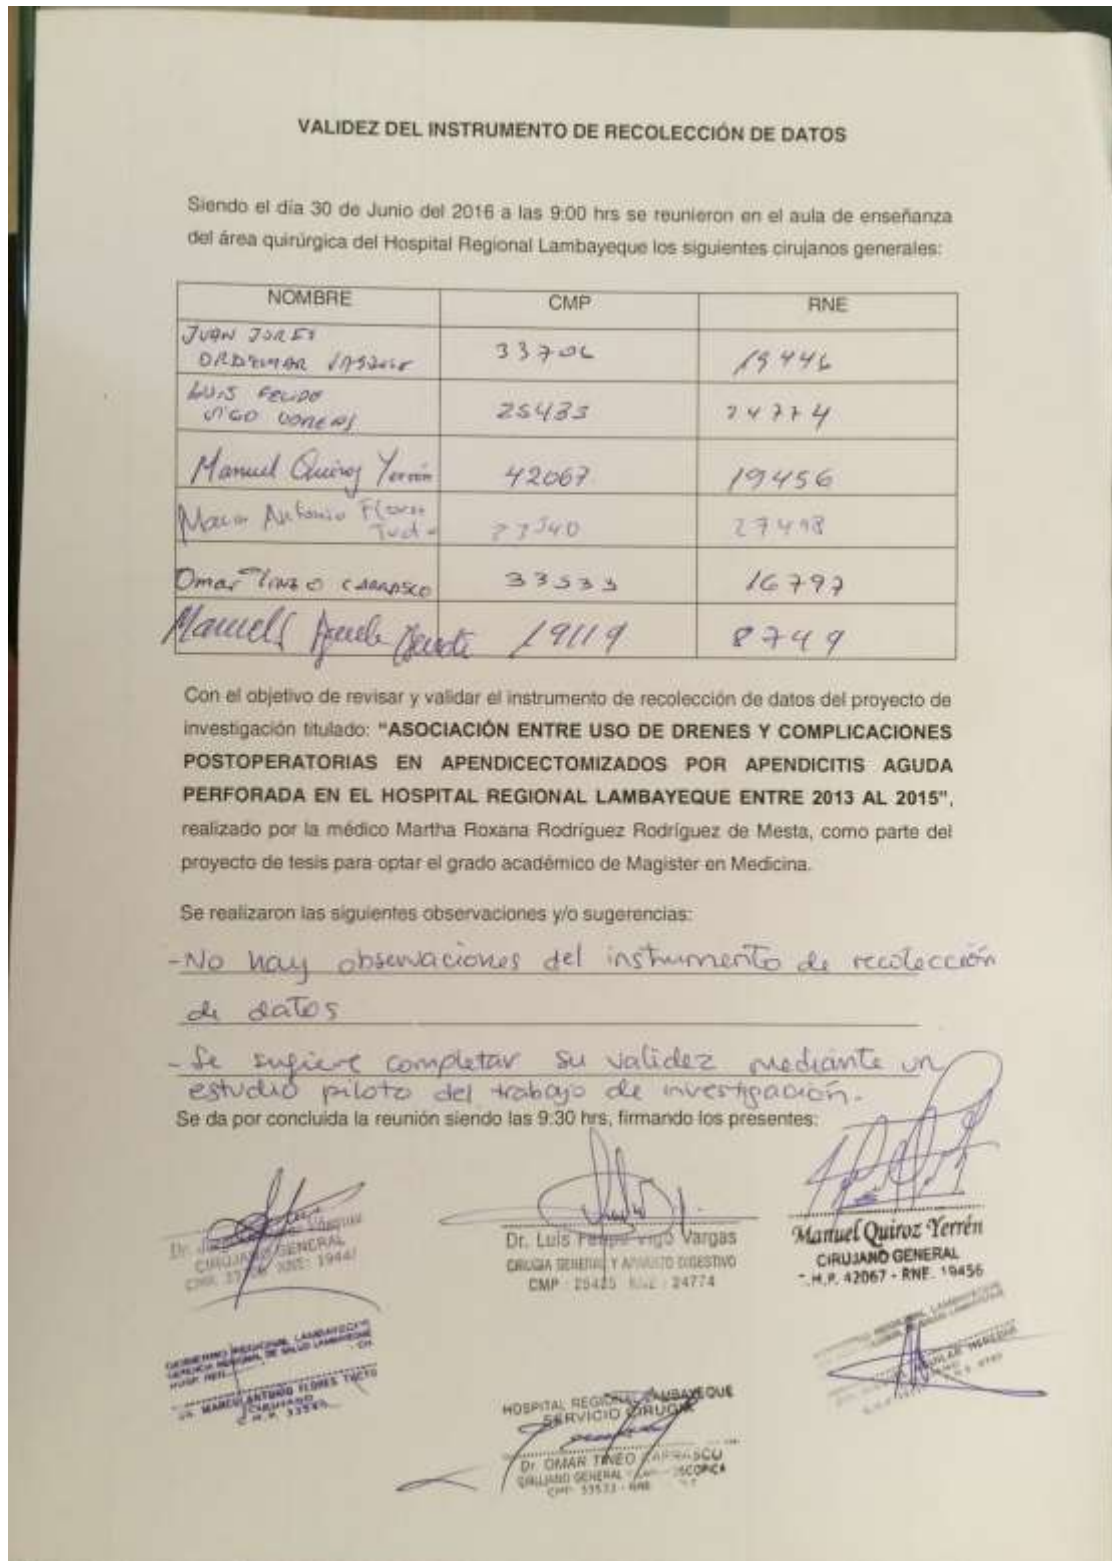 VALIDEZ DEL INSTRUMENTO DE RECOLECCIÓN DE DATOS
Siendo el día 30 de Junio del 2016 a las 9:00 hrs se reunieron en el aula de enseñanza
del área quirúrgica del Hospital Regional Lambayeque los siguientes cirujanos generales:
NOMBRE CMP RNE
JUAN 33706 19446
LUIS FELIPE VIGO 25433 24774
Manuel Quiroz Yerrén 42067 19456
Antonio Flores 27498
Omar Tineo CARRASCO 33533 16797
Manuel 19119 8749
Con el objetivo de revisar y validar el instrumento de recolección de datos del proyecto de
investigación titulado: "ASOCIACIÓN ENTRE USO DE DRENES Y COMPLICACIONES
POSTOPERATORIAS EN APENDICECTOMIZADOS POR APENDICITIS AGUDA
PERFORADA EN EL HOSPITAL REGIONAL LAMBAYEQUE ENTRE 2013 AL 2015",
realizado por la médico Martha Roxana Rodríguez Rodríguez de Mesta, como parte del
proyecto de tesis para optar el grado académico de Magister en Medicina.
Se realizaron las siguientes observaciones y/o sugerencias:
-No hay observaciones del instrumento de recolección
de datos
- Se sugiere completar su validez mediante un
estudio piloto del trabajo de investigación.
Se da por concluida la reunión siendo las 9:30 hrs, firmando los presentes:
CIRUJANO GENERAL
Dr. Luis Felipe Vigo Vargas
CIRUGIA GENERAL Y APARATO DIGESTIVO
CMP : 25435 RNE : 24774
Manuel Quiroz Yerrén
CIRUJANO GENERAL
C.M.P. 42067 - RNE. 19456
GOBIERNO REGIONAL LAMBAYEQUE
GERENCIA REGIONAL DE SALUD LAMBAYEQUE
MARCO ANTONIO FLORES TUCTO
CIRUJANO
AGUILAR HEREDIA
HOSPITAL REGIONAL LAMBAYEQUE
SERVICIO CIRUGIA
Dr. OMAR TINEO CARRASCO
CIRUJANO GENERAL